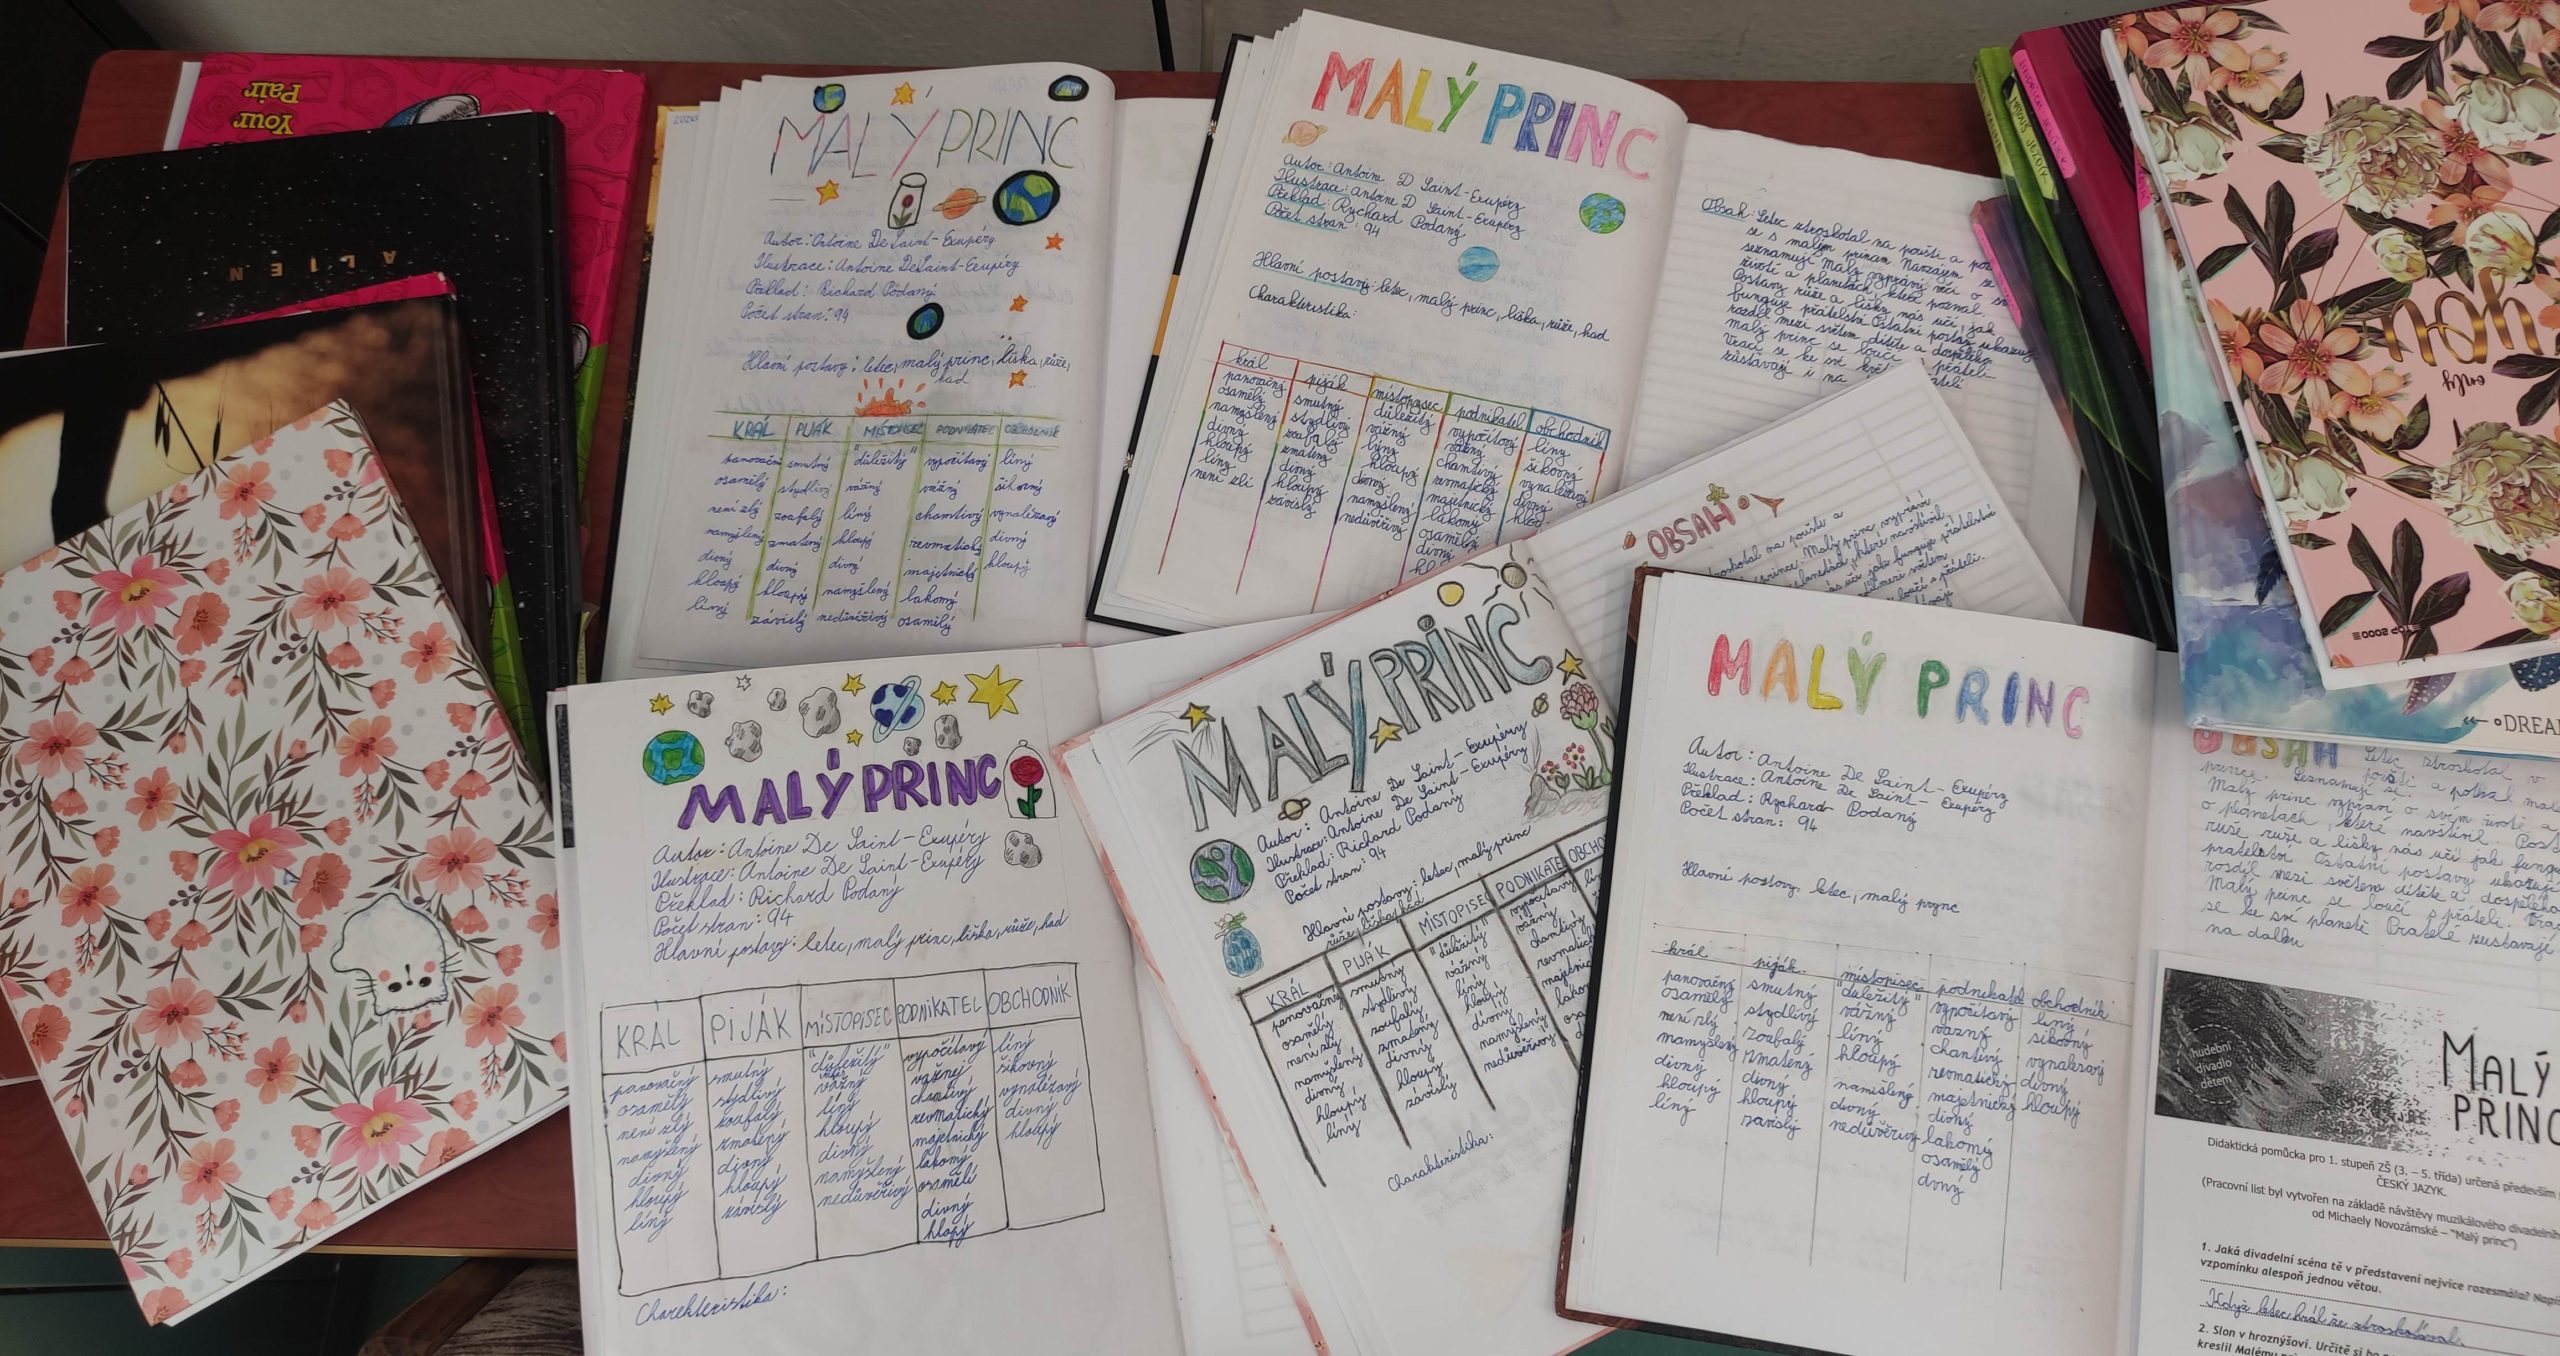 Your
Pair
ALIEN
MALÝ PRINC
Autor: Antoine De Saint-Exupéry
Ilustrace: Antoine De Saint-Exupéry
Překlad: Richard Podaný
Počet stran: 94
Hlavní postavy: letec, malý princ, liška, růže,
had
KRÁL PIJÁK MÍSTOPISEC PODNIKATEL OBCHODNÍK
panovačný smutný "důležitý" vypočítavý líný
osamělý stydlivý vážný vážný šikovný
není zlý zoufalý líný chamtivý vynalézavý
namyšlený zmatený hloupý revmatický divný
divný divný divný majetnický hloupý
hloupý hloupý namyšlený lakomý
líný závislý nedůvěřivý osamělý
MALÝ PRINC
Autor: Antoine D Saint-Exupéry
Ilustrace: Antoine D Saint-Exupéry
Překlad: Rychard Podaný
Počet stran: 94
Hlavní postavy: letec, malý princ, liška, růže, had
Charakteristika:
král piják místopisec podnikatel obchodník
panovačný smutný důležitý vypočítavý líný
osamělý stydlivý vážný vážný šikovný
namyšlený zoufalý líný chamtivý vynalézavý
divný zmatený hloupý revmatický divný
hloupý divný divný majetnický
líný hloupý namyšlený lakomý
není zlí závislý nedůvěřivý osamělý
divný
Obsah: Letec ztroskotal na poušti a
se s malým princem. Navzájem se
seznamují Malý vypráví věci o
životě a planetách, které poznal.
Postavy růže a lišky nás učí, jak
funguje přátelství Ostatní postavy ukazují
rozdíl mezi světem dítěte a dospělého.
malý princ se loučí s přáteli.
Vrací se ke své
zůstávají i na
OBSAH
MALÝ PRINC
Autor: Antoine De Saint-Exupéry
Ilustrace: Antoine De Saint-Exupéry
Překlad: Richard Podaný
Počet stran: 94
Hlavní postavy: letec, malý princ, liška, růže, had
KRÁL PIJÁK MÍSTOPISEC PODNIKATEL OBCHODNÍK
panovačný smutný "důležitý" vypočítavý líný
osamělý stydlivý vážný vážnej šikovný
není zlý zoufalý líný chamtivý vynalézavý
namyšlený zmatený hloupý revmatický divný
divný divný divný majetnický hloupý
hloupý hloupý namyšlený lakomý
líný závislý nedůvěřivý osamělí
divný
hlopý
Charekteristika:
MALÝ PRINC
Autor: Antoine De Saint-Exupéry
Ilustrace: Antoine De Saint-Exupéry
Překlad: Richard Podaný
Počet stran: 94
Hlavní postavy: letec, malý princ
růže, liška, had
KRÁL PIJÁK MÍSTOPISEC PODNIKATEL OBCHO
panovačný smutný "důležitý" vypočítavý
osamělý stydlivý vážný vážný
není zlý zoufalý líný chamtivý
namyšlený zmatený hloupý revmatický
divný divný divný
hloupý hloupý namyšlený
líný závislý nedůvěřivý
Charakteristika:
MALÝ PRINC
Autor: Antoine De Saint-Exupéry
Ilustrace: Antoine De Saint-Exupéry
Překlad: Rychard Podaný
Počet stran: 94
Hlavní postavy: letec, malý prync
král piják místopisec podnikatel obchodník
panovačný smutný "důležitý" vypočítavý líný
osamělý stydlivý vážný vázný šikovný
není zlý zoufalý líný chantivý vynalézavý
namyšlený zmatený hloupý revmatický divný
divný divný namišlený majetnický hloupý
hloupý hloupý divný divný
líný závislý nedůvěřivý lakomý
osamělý
divný
you
only
TOP 2000
DREA
OBSAH Letec ztroskotal v
poušti a potkal malé
prince. Seznamují se.
Malý princ vypráví o svým životě a
o planetach, které navštívil. Post
ruše růže a lišky nás učí jak fungu
pratelstvi Ostatní postavy ukazují
rozdíl mezi světem dítěte a dospělého
Malý princ se loučí s přáteli. Vrac
se ke své planetě Pratelé zustavají
na dalku
hudební
divadlo
dětem
MALÝ
PRINC
Didaktická pomůcka pro 1. stupeň ZŠ (3. – 5. třída) určená především
ČESKÝ JAZYK.
(Pracovní list byl vytvořen na základě návštěvy muzikálového divadelní
od Michaely Novozámské – "Malý princ")
1. Jaká divadelní scéna tě v představení nejvíce rozesmála? Napi
vzpomínku alespoň jednou větou.
Když letec hrál že ztroskotával.
2. Slon v hroznýšovi. Určitě si
kreslil Malému